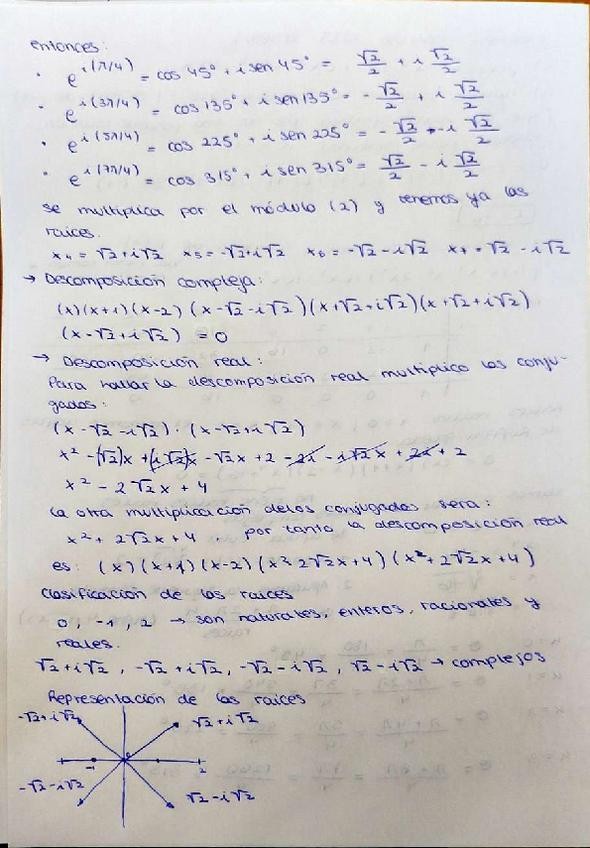 entonces:
· e^{i(π/4)} = cos 45° + i sen 45° = √2/2 + i √2/2
· e^{i(3π/4)} = cos 135° + i sen 135° = - √2/2 + i √2/2
· e^{i(5π/4)} = cos 225° + i sen 225° = - √2/2 - i √2/2
· e^{i(7π/4)} = cos 315° + i sen 315° = √2/2 - i √2/2
se multiplica por el módulo (2) y tenemos ya las
raíces.
x₄ = √2+i√2 x₅ = -√2+i√2 x₆ = -√2-i√2 x₇ = √2-i√2
→ Descomposición compleja:
(x)(x+1)(x-2)(x-√2-i√2)(x+√2+i√2)(x+√2+i√2)
(x-√2+i√2) = 0
→ Descomposición real:
Para hallar la descomposición real multiplico los conju-
gados:
(x-√2-i√2)·(x-√2+i√2)
x² -(√2)x +(i√2)x -√2x +2 -2i -i√2x +2i +2
x² - 2√2x + 4
La otra multiplicación de los conjugados sera:
x² + 2√2x + 4 . por tanto la descomposición real
es: (x)(x+1)(x-2)(x²-2√2x+4)(x²+2√2x+4)
Clasificación de las raíces
0, -1, 2 → son naturales, enteros, racionales y
reales.
√2+i√2, -√2+i√2, -√2-i√2, √2-i√2 → complejos
Representación de las raíces
-√2+i√2 √2+i√2
-1 0 2
-√2-i√2 √2-i√2